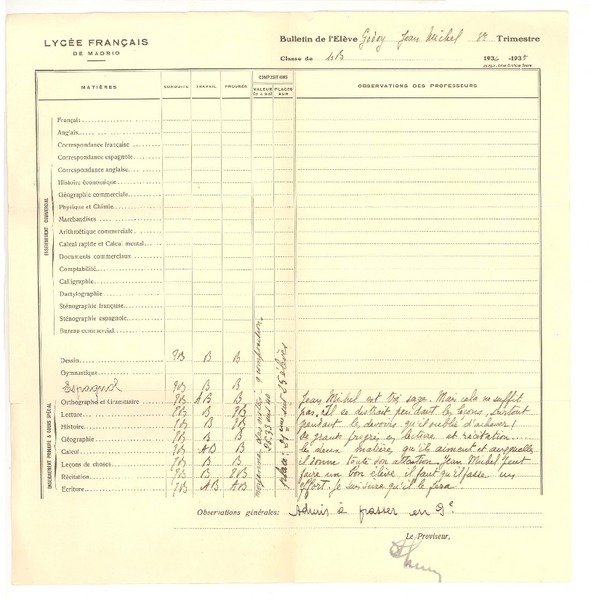 LYCÉE FRANÇAIS
DE MADRID
Bulletin de l'Elève Godoy Jean Michel Trimestre
Classe de
MATIÈRES
CONDUITE
TRAVAIL
PROGRÈS
COMPOSITIONS
VALEUR
PLACES
SUR
OBSERVATIONS DES PROFESSEURS
ENSEIGNEMENT COMMERCIAL
Français
Anglais
Correspondance française
Correspondance espagnole
Correspondance anglaise
Histoire économique
Géographie commerciale
Physique et Chimie
Marchandises
Arithmétique commerciale
Calcul rapide et Calcul mental
Documents commerciaux
Comptabilité
Calligraphie
Dactylographie
Sténographie française
Sténographie espagnole
Bureau commercial
Dessin TB B B
Gymnastique
Espagnol TB B B
ENSEIGNEMENT PRIMAIRE & COURS SPÉCIAL
Orthographe et Grammaire TB AB B
Lecture TB B TB
Histoire TB B TB
Géographie TB B B
Calcul TB B AB
Leçons de choses TB B B
Récitation TB B TB
Ecriture TB AB AB
moyenne des notes
place: sur 45 élèves
Jean Michel est très sage. Mais cela ne suffit
pas. Il se distrait pendant les leçons, surtout
pendant les devoirs qu'il oublie d'achever!
De grands progrès en lecture et récitation
les deux matières qu'il aiment et auxquelles
il donne toute son attention. Jean Michel peut
faire un bon élève, il faut qu'il fasse un
effort. Je suis sûre qu'il le fera
Observations générales: Admis à passer en 9e
Le Proviseur,